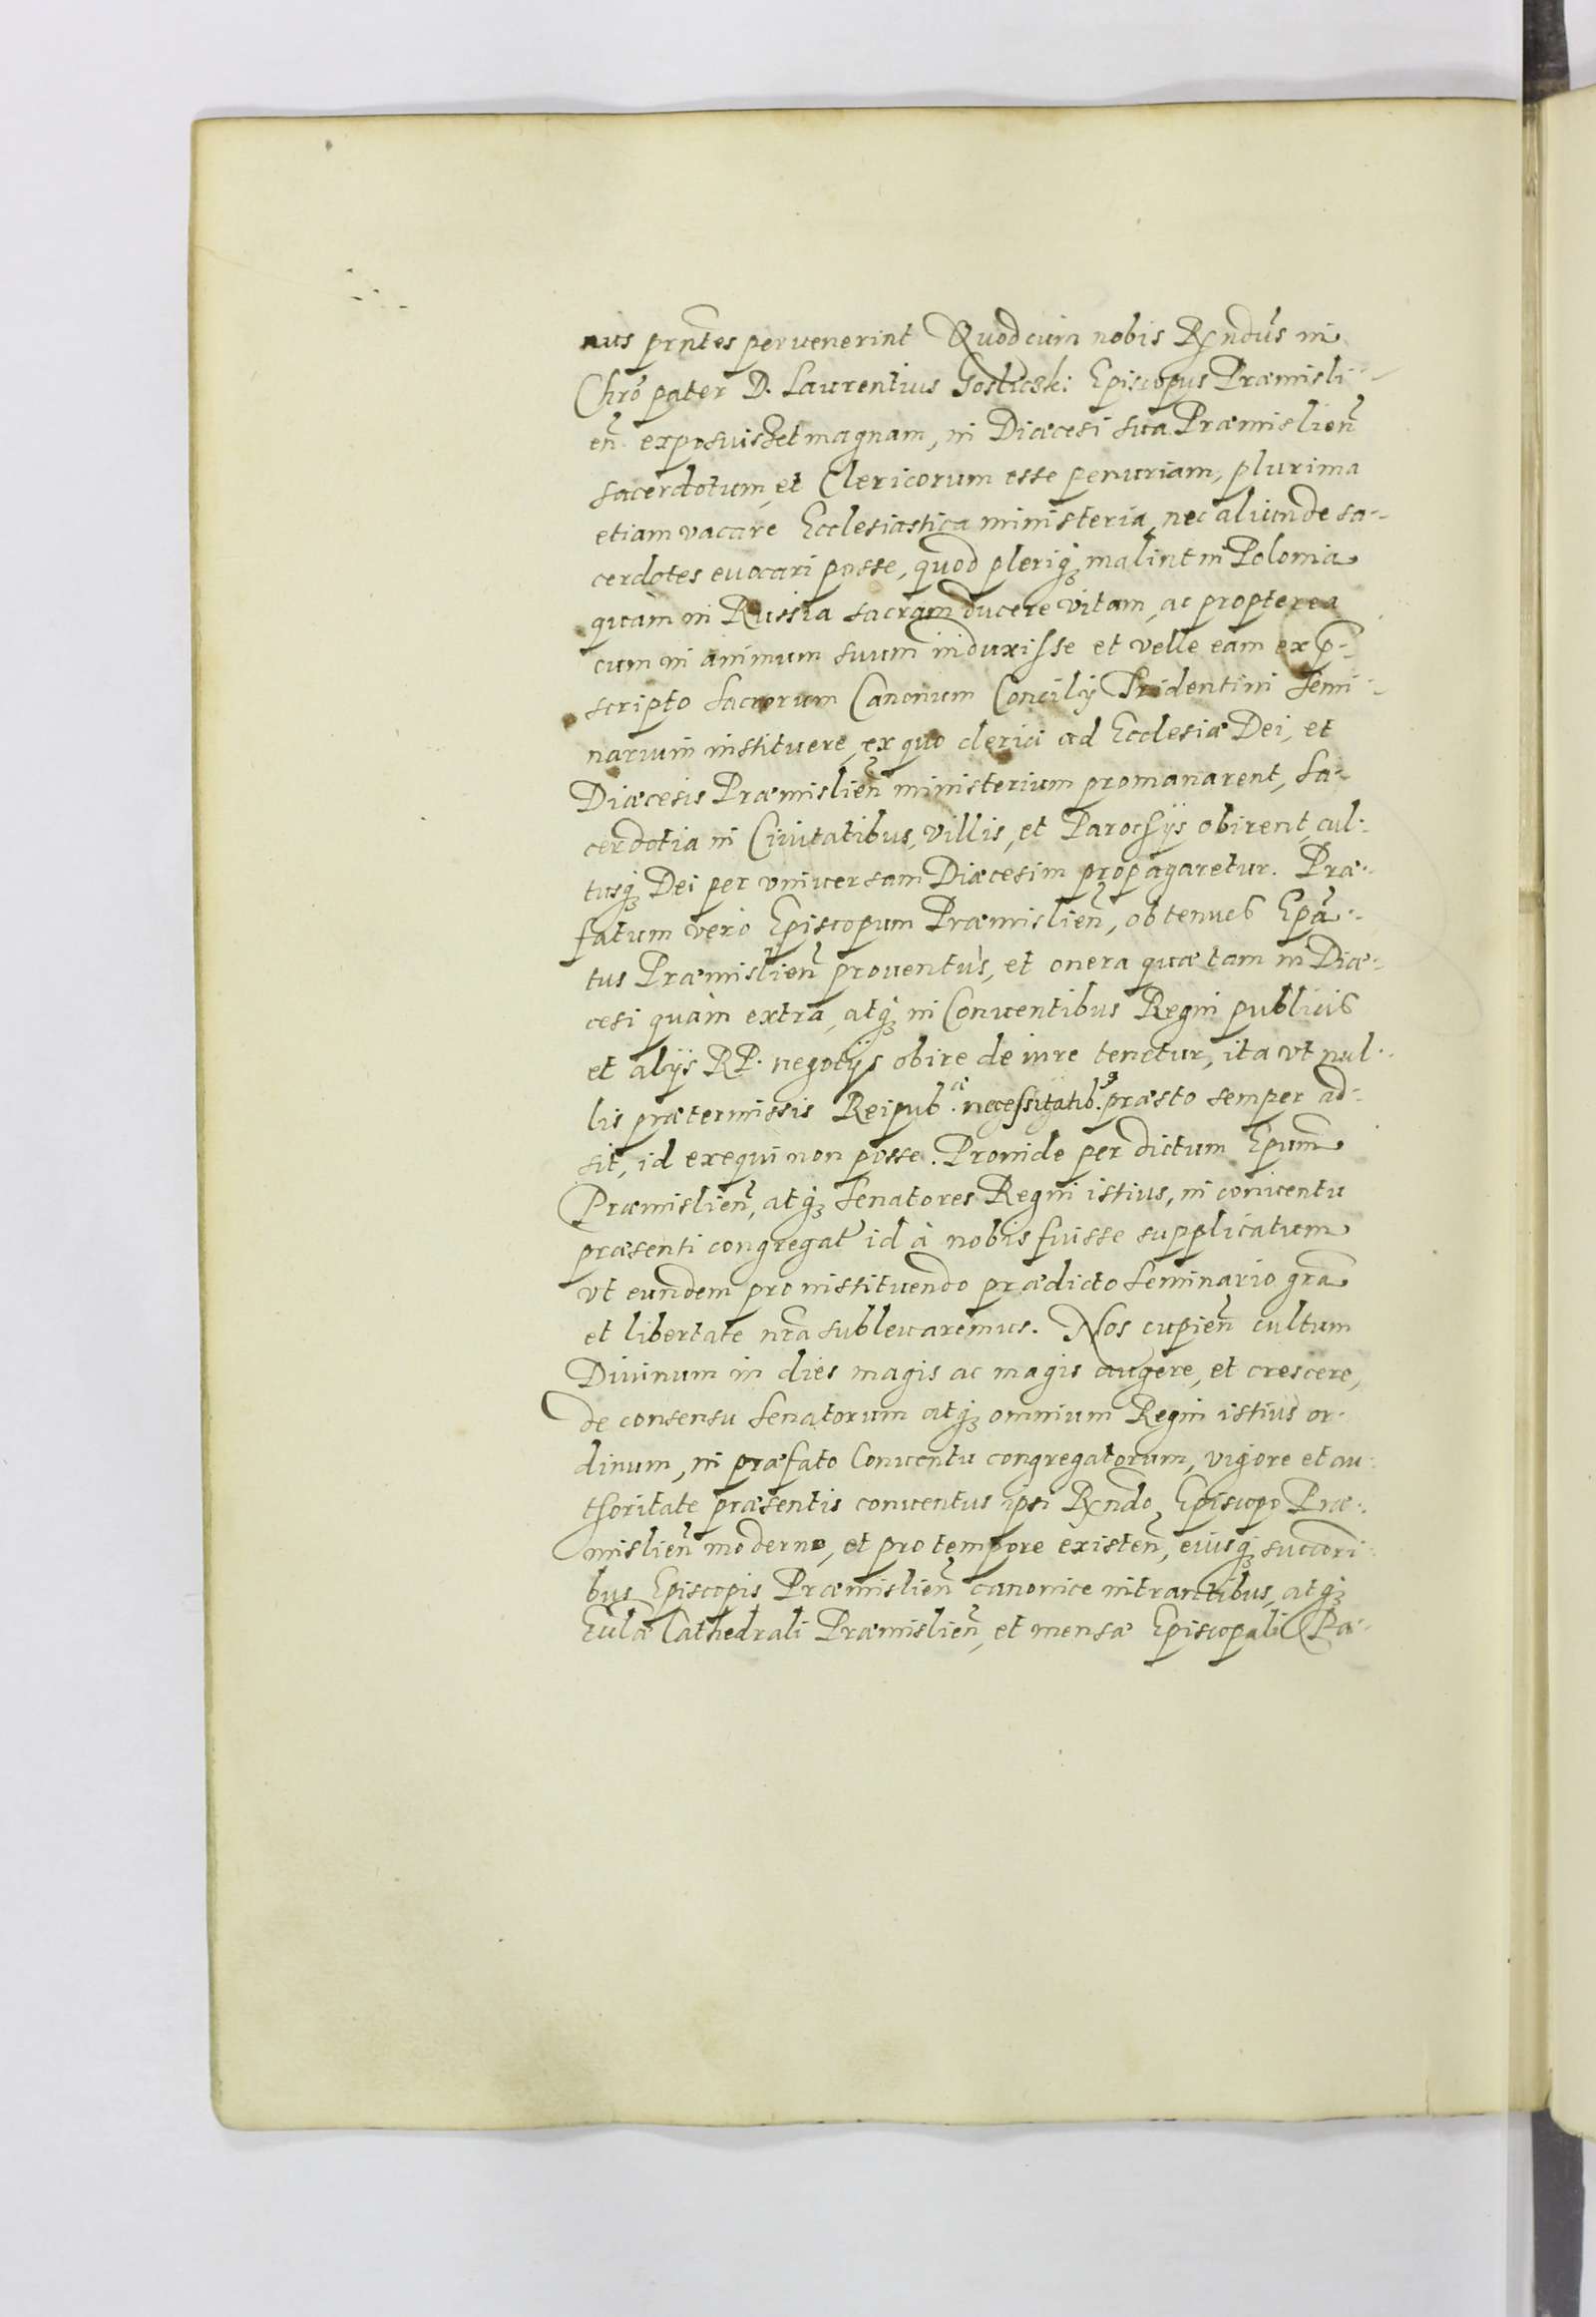 nus prñtes peruenerint Quod cum nobis Rx̃ndus in
Chrõ pater D. Laurentius Goslicski Episcopus Præmisli-
eñ exposuisset magnam, in Diæcesi sua Præmislieñ
sacerdotum, et Clericorum esse penuriam, plurima
etiam vacare Ecclesiastica ministeria, nec aliunde sa-
cerdotes euocari posse, quod pleriq; malint in Polonia
quàm in Russia sacram ducere vitam, ac propterea
cum in animum suum induxisse et velle eam ex p̃-
scripto Sacrorum Canonum Concilij Tridentini Semi-
narium instituere, ex quo clerici ad Ecclesiæ Dei, et
Diæcesis Præmislieñ ministerium promanarent, Sa-
cerdotia in Ciuitatibus, villis, et Parochijs obirent, cul-
tusq; Dei per vniuersam Diæcesim propagaretur. Præ-
fatum verò Episcopum Præmislieñ, ob tenues Epã-
tus Præmislieñ prouentus, et onera quæ tam in Diæ-
cesi quàm extra, atq; in Conuentibus Regni publicis
et alijs RP. negotijs obire de iure tenetur, ita vt nul-
lis prætermissis Reipub.æ necessitatib.9 præsto semper ad-
sit, id exequi non posse. Proinde per dictum Epum̃
Præmislieñ, atq; Senatores Regni istius, in conuentu
præsenti congregat̃ id à nobis fuisse supplicatum
vt eundem pro instituendo prædicto Seminario grã
et libertate nr̃a subleuaremus. Nos cupieñ cultum
Diuinum in dies magis ac magis augere, et crescere,
de consensu Senatorum atq; omnium Regni istius or-
dinum, in præfato Conuentu congregatorum, vigore et au-
thoritate præsentis conuentus ipsi Rx̃ndo Episcopo Præ-
mislieñ moderno, et pro tempore existeñ, eiusq; succori-
bus Episcopis Præmislieñ canonice intrantibus, atq;
Eccl̃æ Cathedrali Præmislieñ, et mensæ Episcopali Pæ-